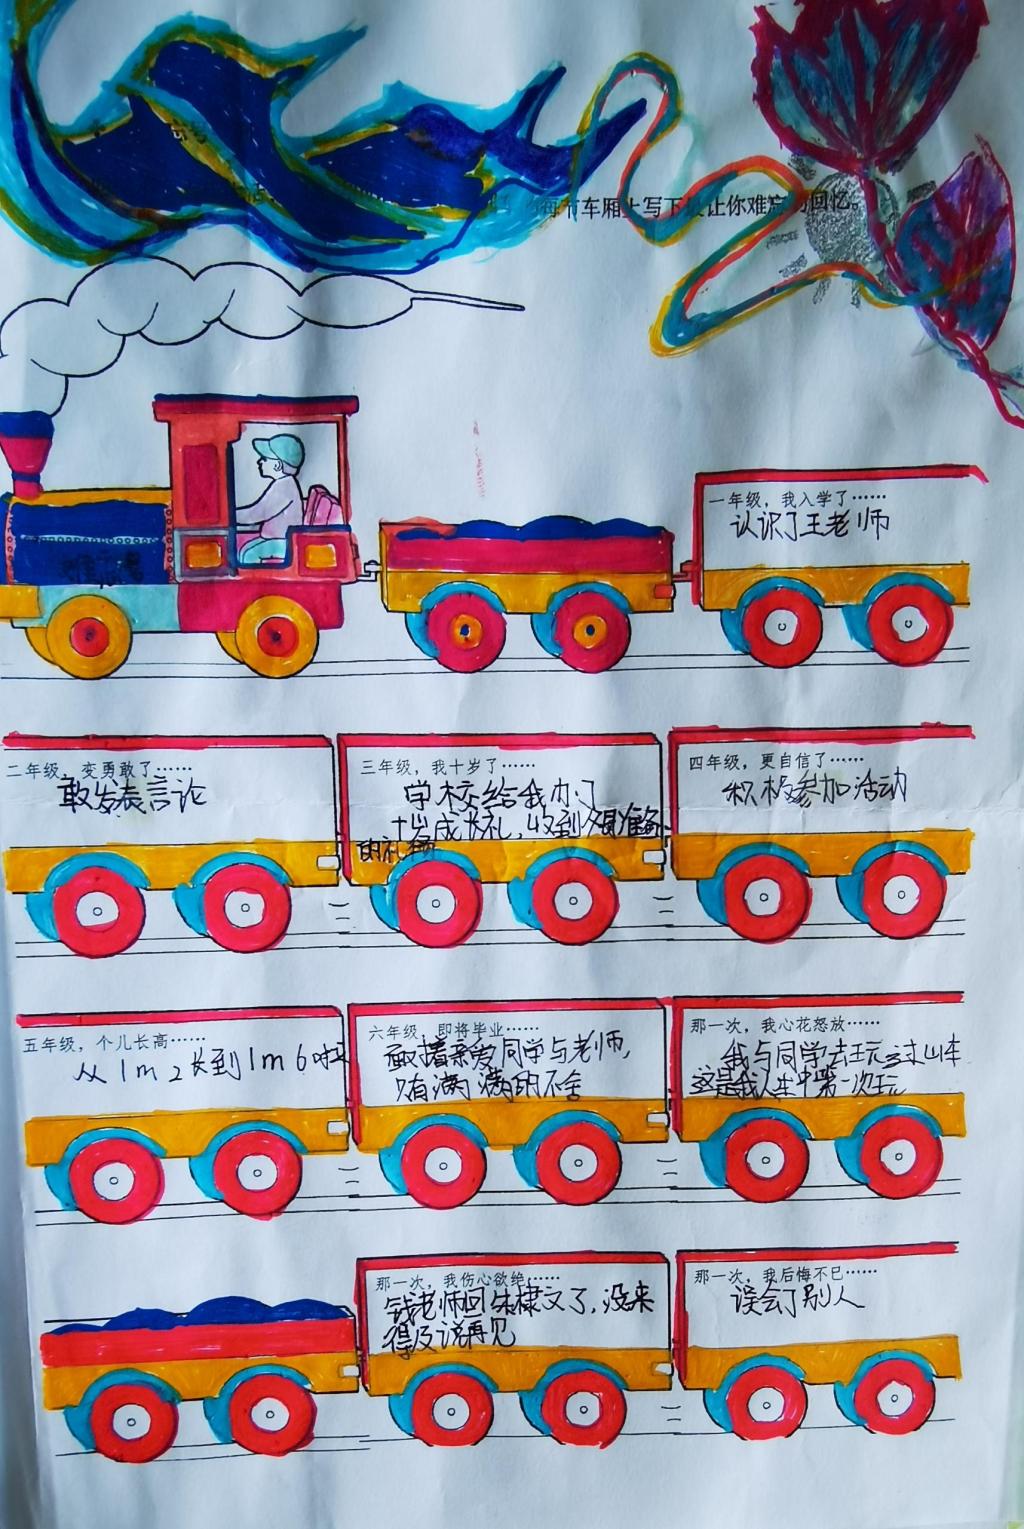 每节车厢上写下最让你难忘的回忆。
一年级，我入学了……
认识了王老师
二年级，变勇敢了……
敢发表言论
三年级，我十岁了……
学校给我办了
十岁成长礼，收到
的礼物
四年级，更自信了……
积极参加活动
五年级，个儿长高……
从1m2长到1m6啦
六年级，即将毕业……
亲爱同学与老师，
只有满满的不舍
那一次，我心花怒放……
我与同学去玩过山车
这是我人生中第一次玩
那一次，我伤心欲绝……
钱老师回朱棣文了，没来
得及说再见
那一次，我后悔不已……
误会了别人